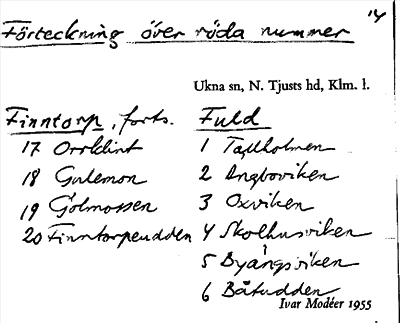 14
Förteckning över röda nummer
Ukna sn, N. Tjusts hd, Klm. l.
Finntorp, forts.
17 Orrklint
18 Gulemon
19 Gölmossen
20 Finntorpeudden
Fuld
1 Tallholmen
2 Ängboviken
3 Oxviken
4 Skolhusviken
5 Byängsviken
6 Båtudden
Ivar Modéer 1955